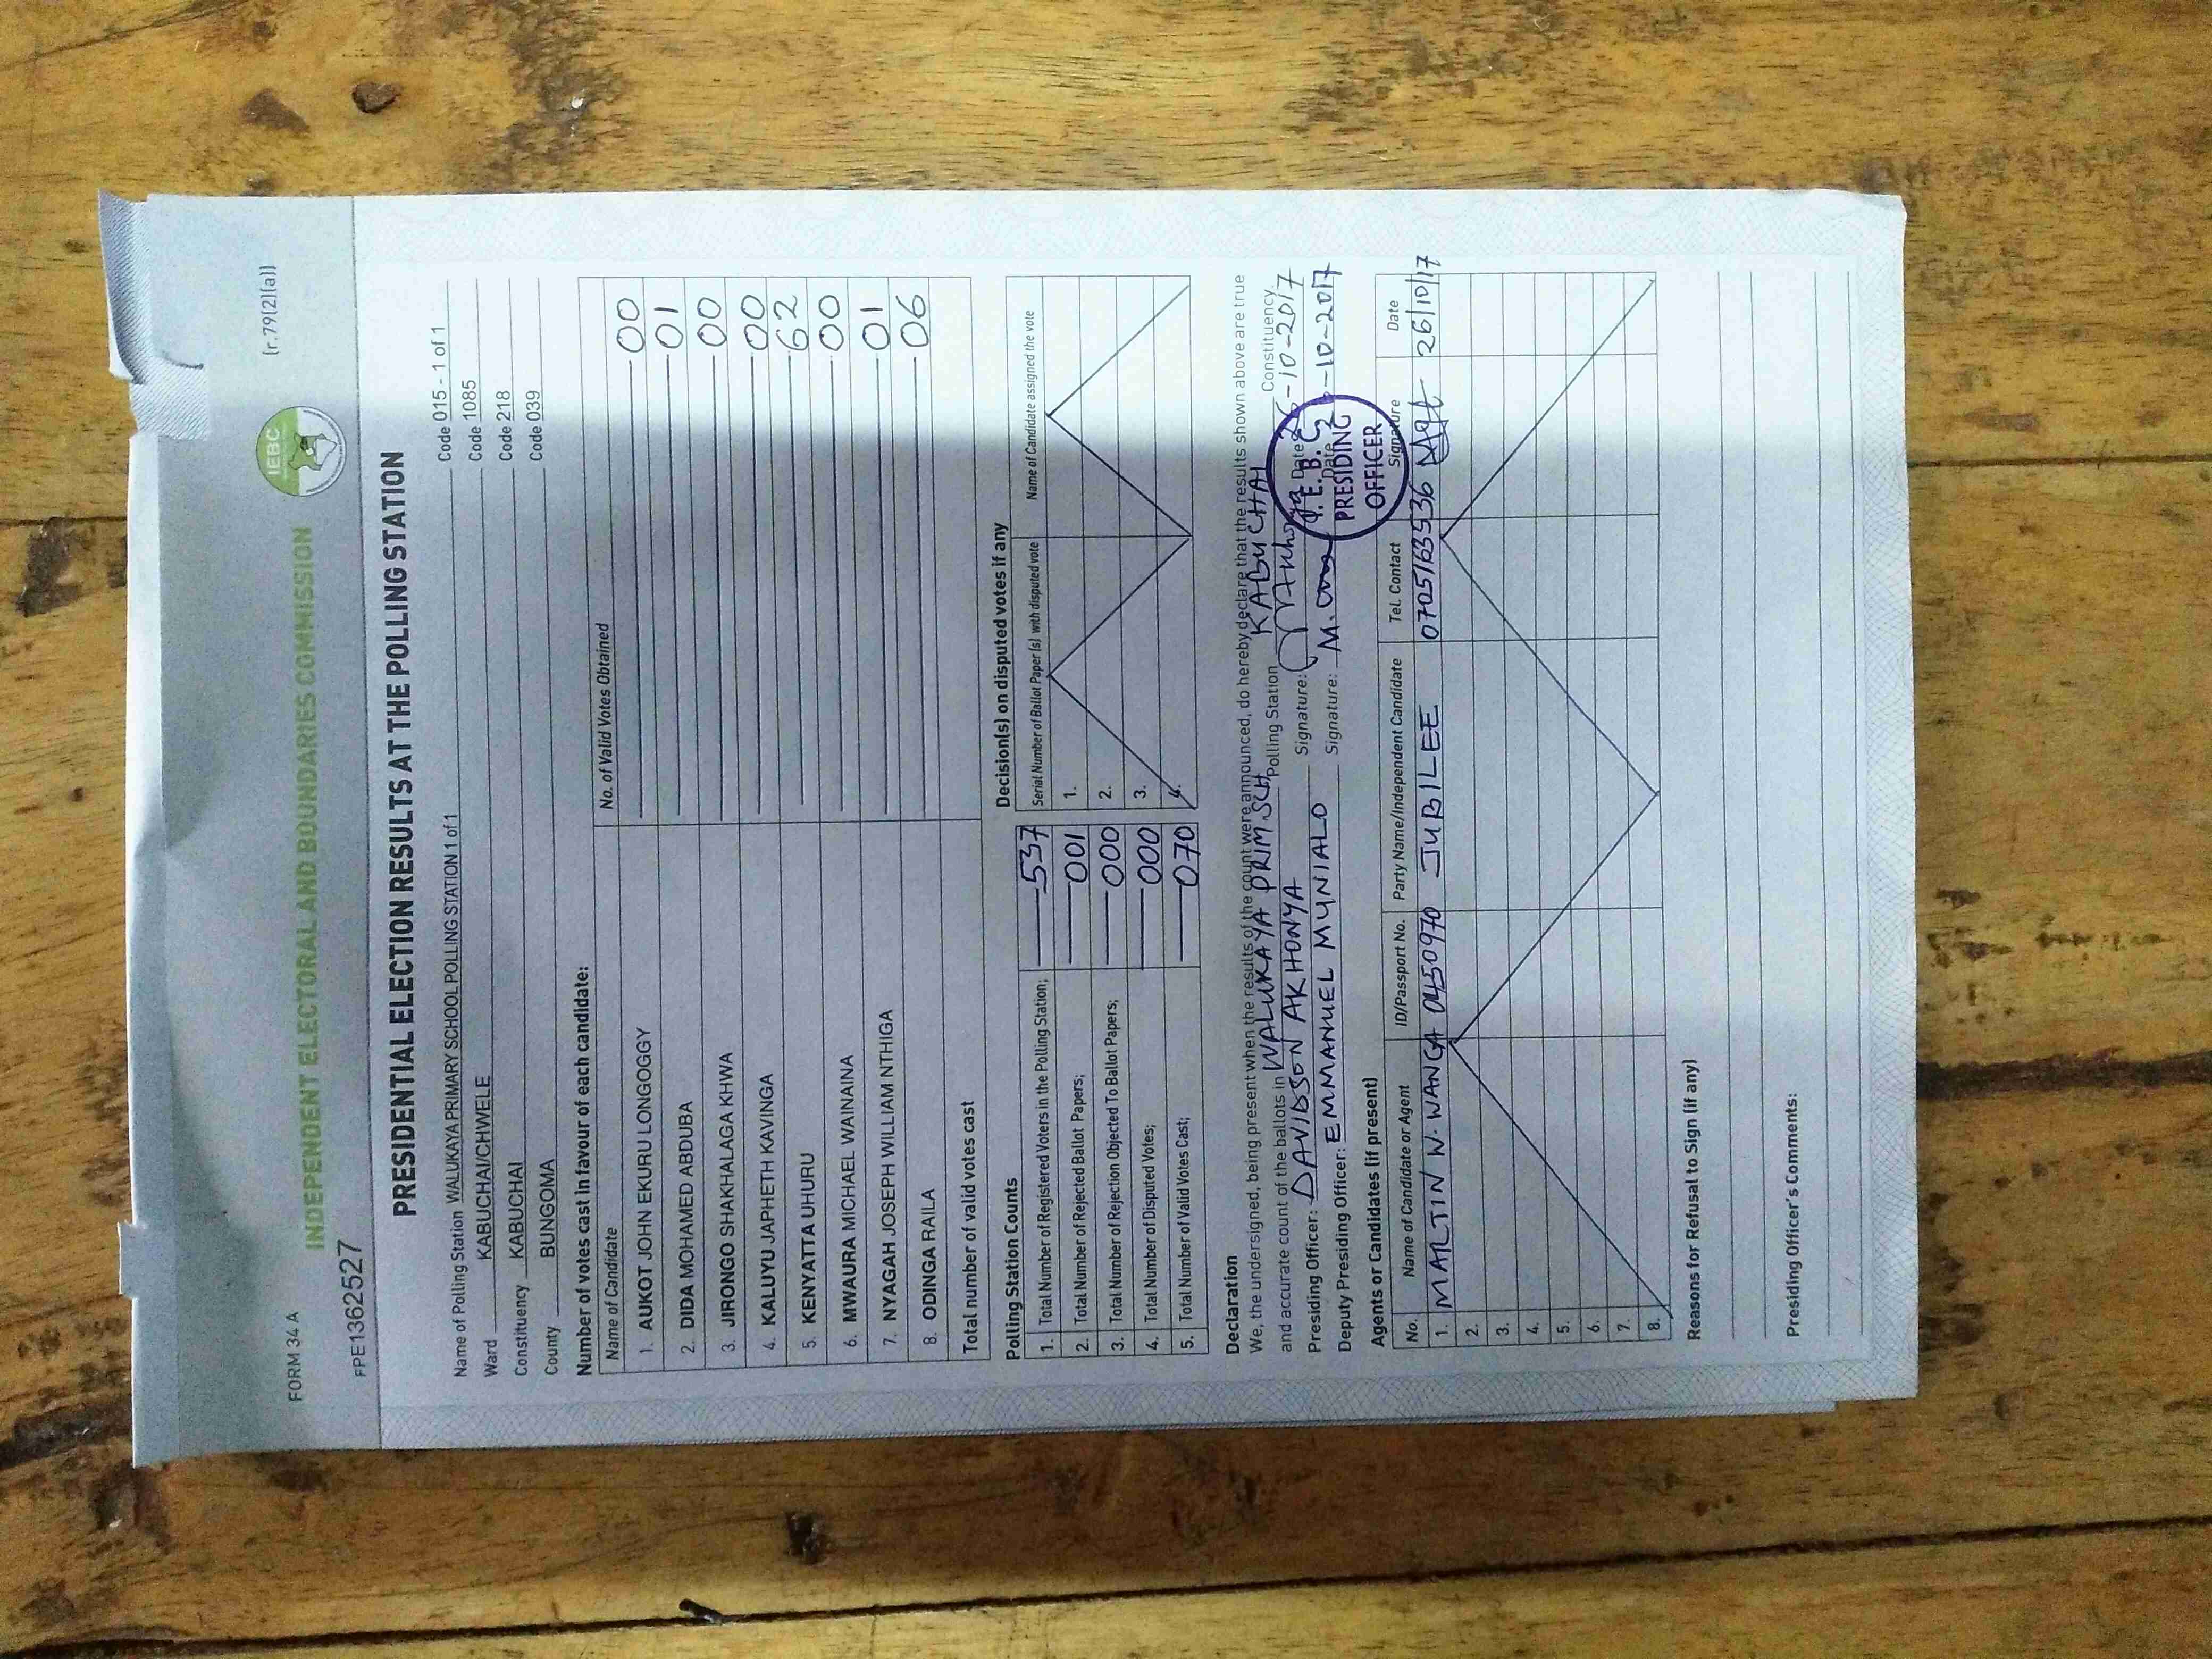 FORM 34 A
(r.79(2)(a))
IEBC
INDEPENDENT ELECTORAL AND BOUNDARIES COMMISSION
FPE1362527
PRESIDENTIAL ELECTION RESULTS AT THE POLLING STATION
Name of Polling Station WALUKAYA PRIMARY SCHOOL POLLING STATION 1 of 1 Code 015 - 1 of 1
Ward KABUCHAI/CHWELE Code 1085
Constituency KABUCHAI Code 218
County BUNGOMA Code 039
Number of votes cast in favour of each candidate:
Name of Candidate No. of Valid Votes Obtained
1. AUKOT JOHN EKURU LONGOGGY 00
2. DIDA MOHAMED ABDUBA 01
3. JIRONGO SHAKHALAGA KHWA 00
4. KALUYU JAPHETH KAVINGA 00
5. KENYATTA UHURU 62
6. MWAURA MICHAEL WAINAINA 00
7. NYAGAH JOSEPH WILLIAM NTHIGA 01
8. ODINGA RAILA 06
Total number of valid votes cast
Polling Station Counts
1. Total Number of Registered Voters in the Polling Station; 537
2. Total Number of Rejected Ballot Papers; 001
3. Total Number of Rejection Objected To Ballot Papers; 000
4. Total Number of Disputed Votes; 000
5. Total Number of Valid Votes Cast; 070
Decision(s) on disputed votes if any
Serial Number of Ballot Paper (s) with disputed vote Name of Candidate assigned the vote
1.
2.
3.
4.
Declaration
We, the undersigned, being present when the results of the count were announced, do hereby declare that the results shown above are true
and accurate count of the ballots in WALUKAYA PRIM SCH Polling Station KABUCHAI Constituency.
Presiding Officer: DAVIDSON AKHONYA Signature: Date: 26-10-2017
Deputy Presiding Officer: EMMANUEL MUNIALO Signature: Date 26-10-2017
I. E. B. C
PRESIDING
OFFICER
Agents or Candidates (if present)
No. Name of Candidate or Agent ID/Passport No. Party Name/Independent Candidate Tel. Contact Signature Date
1. MARTIN W. WANGA 0450970 JUBILEE 0705163536 26/10/17
2.
3.
4.
5.
6.
7.
8.
Reasons for Refusal to Sign (if any)
Presiding Officer's Comments: